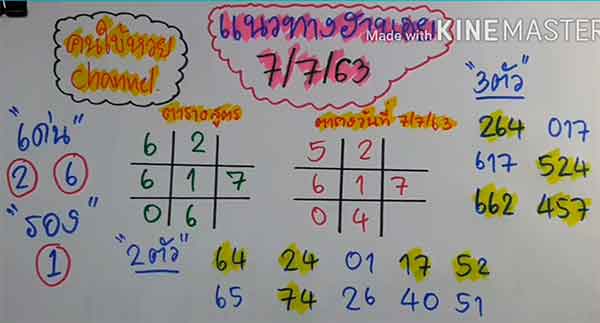 คนใบ้หวย
Channel.
แนวทางฮานอย
7/7/63
Made with KINEMASTER
"3ตัว"
264 017
617 524
662 457
"เด่น"
2 6
"รอง"
1
ตารางสูตร
6 2
6 1 7
0 6
ตารางวันที่ 7/7/63
5 2
6 1 7
0 4
"2ตัว"
64 24 01 17 52
65 74 26 40 51